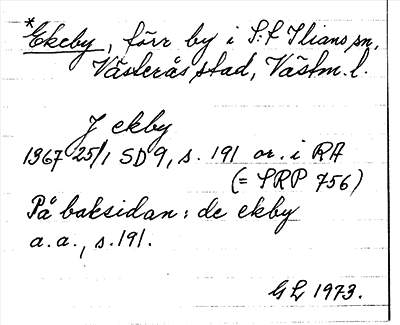 *Ekeby, förr by i S:t Ilians sn.
Västerås stad, Västm. l.
J ekby
1367 25/1 SD 9, s. 191 or. i RA
(= SRP 756)
På baksidan: de ekby
a.a., s. 191.
GL 1973.